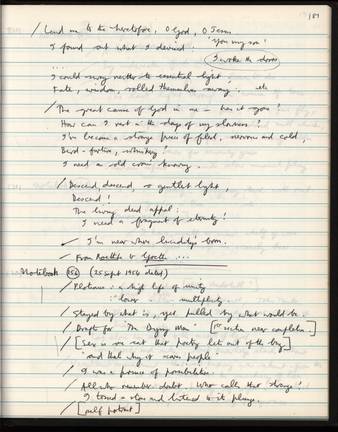 187
/ Lead me to the heretofore, O God, O Jesus
'You my son'
I found out what I desired:
I woke the stones
....
I could sway nearer to essential light;
Fate, wisdom, rolled themselves away; etc
/ The great cause of God in me – has it gone?
How can I rest in the days of my slowness?
I've become a strange piece of flesh, nervous and cold,
Bird-furtive, whiskery!
I need a old crone's knowing.
/ Descend, descend, O gentlest light,
Descend!
The living dead appal:
I need a fragment of eternity!
✓ I'm near where lucidity's born.
/ From Roethke to Goethe ...
Notebook 156 (25 Sept 1954 dated)
/ Plotinus: a high life of unity
" lower " multiplicity.
/ Stayed by what is, yet pulled by what would be.
/ Drafts for 'The Dying Man' [1st section near completion]
/ [Sex is we eat that poetry let out of the bag
and that why it scares people]
/ I was a prince of possibilities.
/ All who remember doubt. Who calls that strange?
I tossed a stone and listened to its plunge.
/ [self portrait]